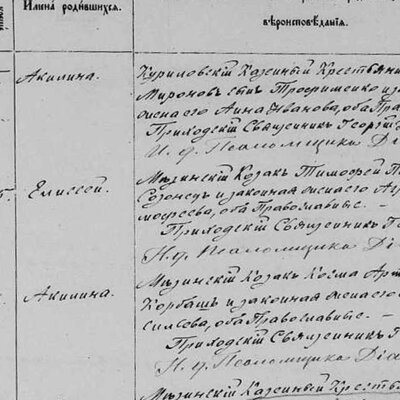 Имена родившихся.
вѣроисповѣданія.
Акилина.
Куриловскій Казенный Крестьянин
Миронов сын Трофименко и за
жена его Анна Иванова, оба Пра
Приходскій Священник Георгій
И. д. Псаломщика Діа
Елисей.
Мѣзинскій Козак Тимофей П
Созонец и законная жена его Агр
мофеева, оба Православные. –
Приходскій Священник Г
И. д. Псаломщика Діа
Акилина.
Мѣзинскій Козак Козма Ар
Корбаш и законная жена его
сильева, оба Православные. –
Приходскій Священник Г
И. д. Псаломщика Діа
Мѣзинскій Казенный Кресть